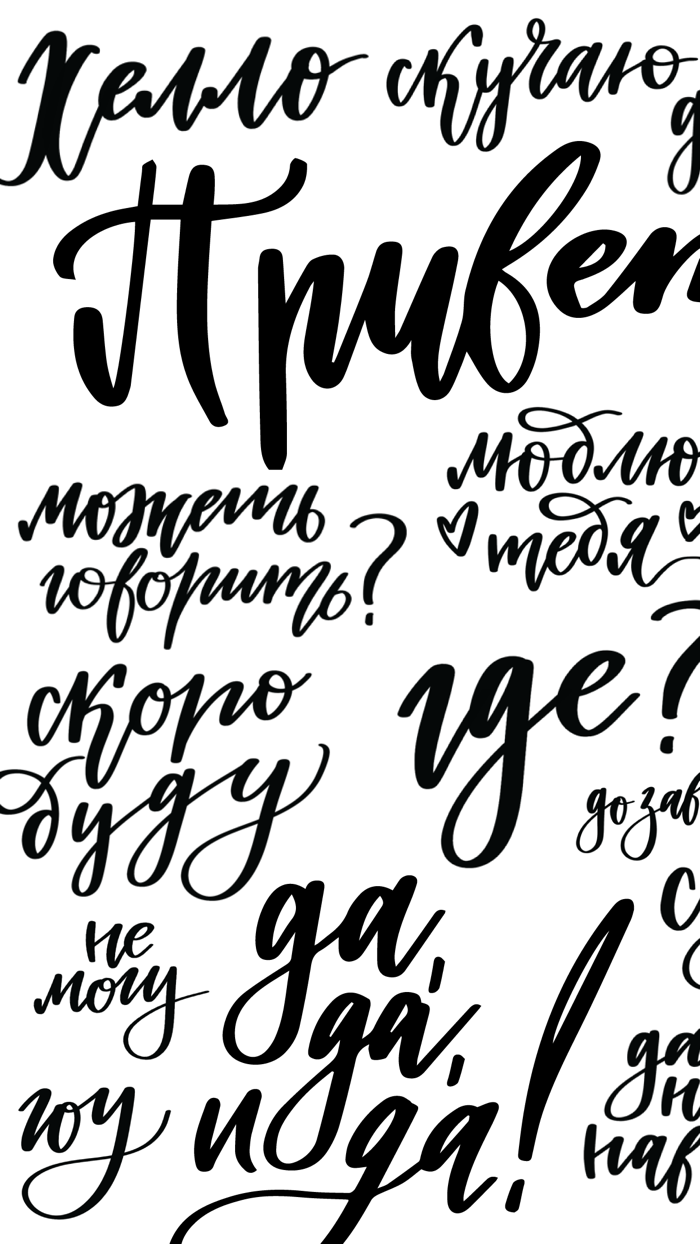 Хелло скучаю
Приве
люблю
тебя
можешь
говорить?
скоро
буду
где?
до зав
не
могу
да,
да,
и да!
гоу
да
н
нав